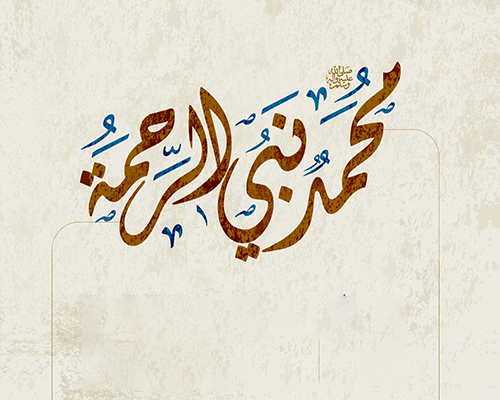 مُحَمَّدٌ نَبِيُّ الرَّحْمَةِ
صلى الله عليه وآله وسلم